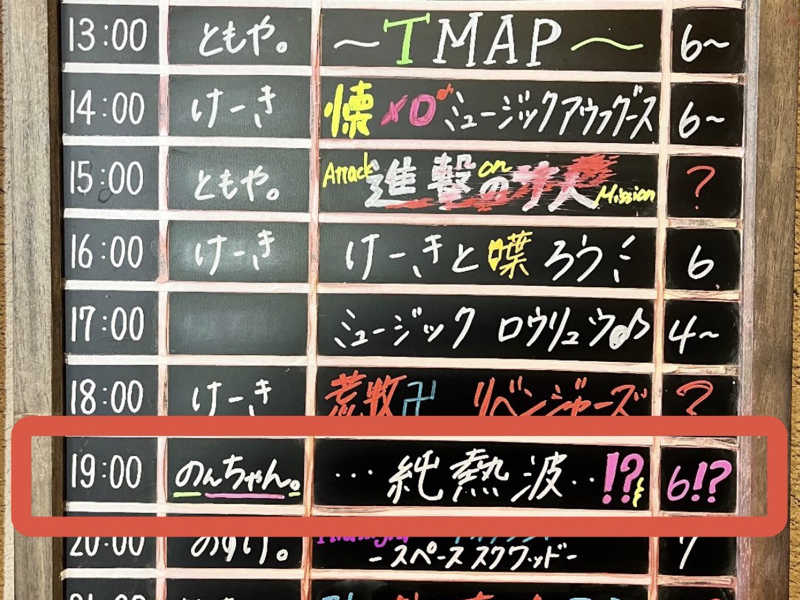 13:00 ともや。 ～TMAP～ 6～
14:00 けーき 懐メロ ミュージックアウフグース 6～
15:00 ともや。 Attack 進撃の on Mission ?
16:00 けーき けーきと喋ろう 6
17:00 ミュージック ロウリュウ♪ 4～
18:00 けーき 荒牧卍 リベンジャーズ ?
19:00 のんちゃん。 ･･･純熱波･･!? 6!?
20:00 のすけ。 -スペーススクワッド- 7